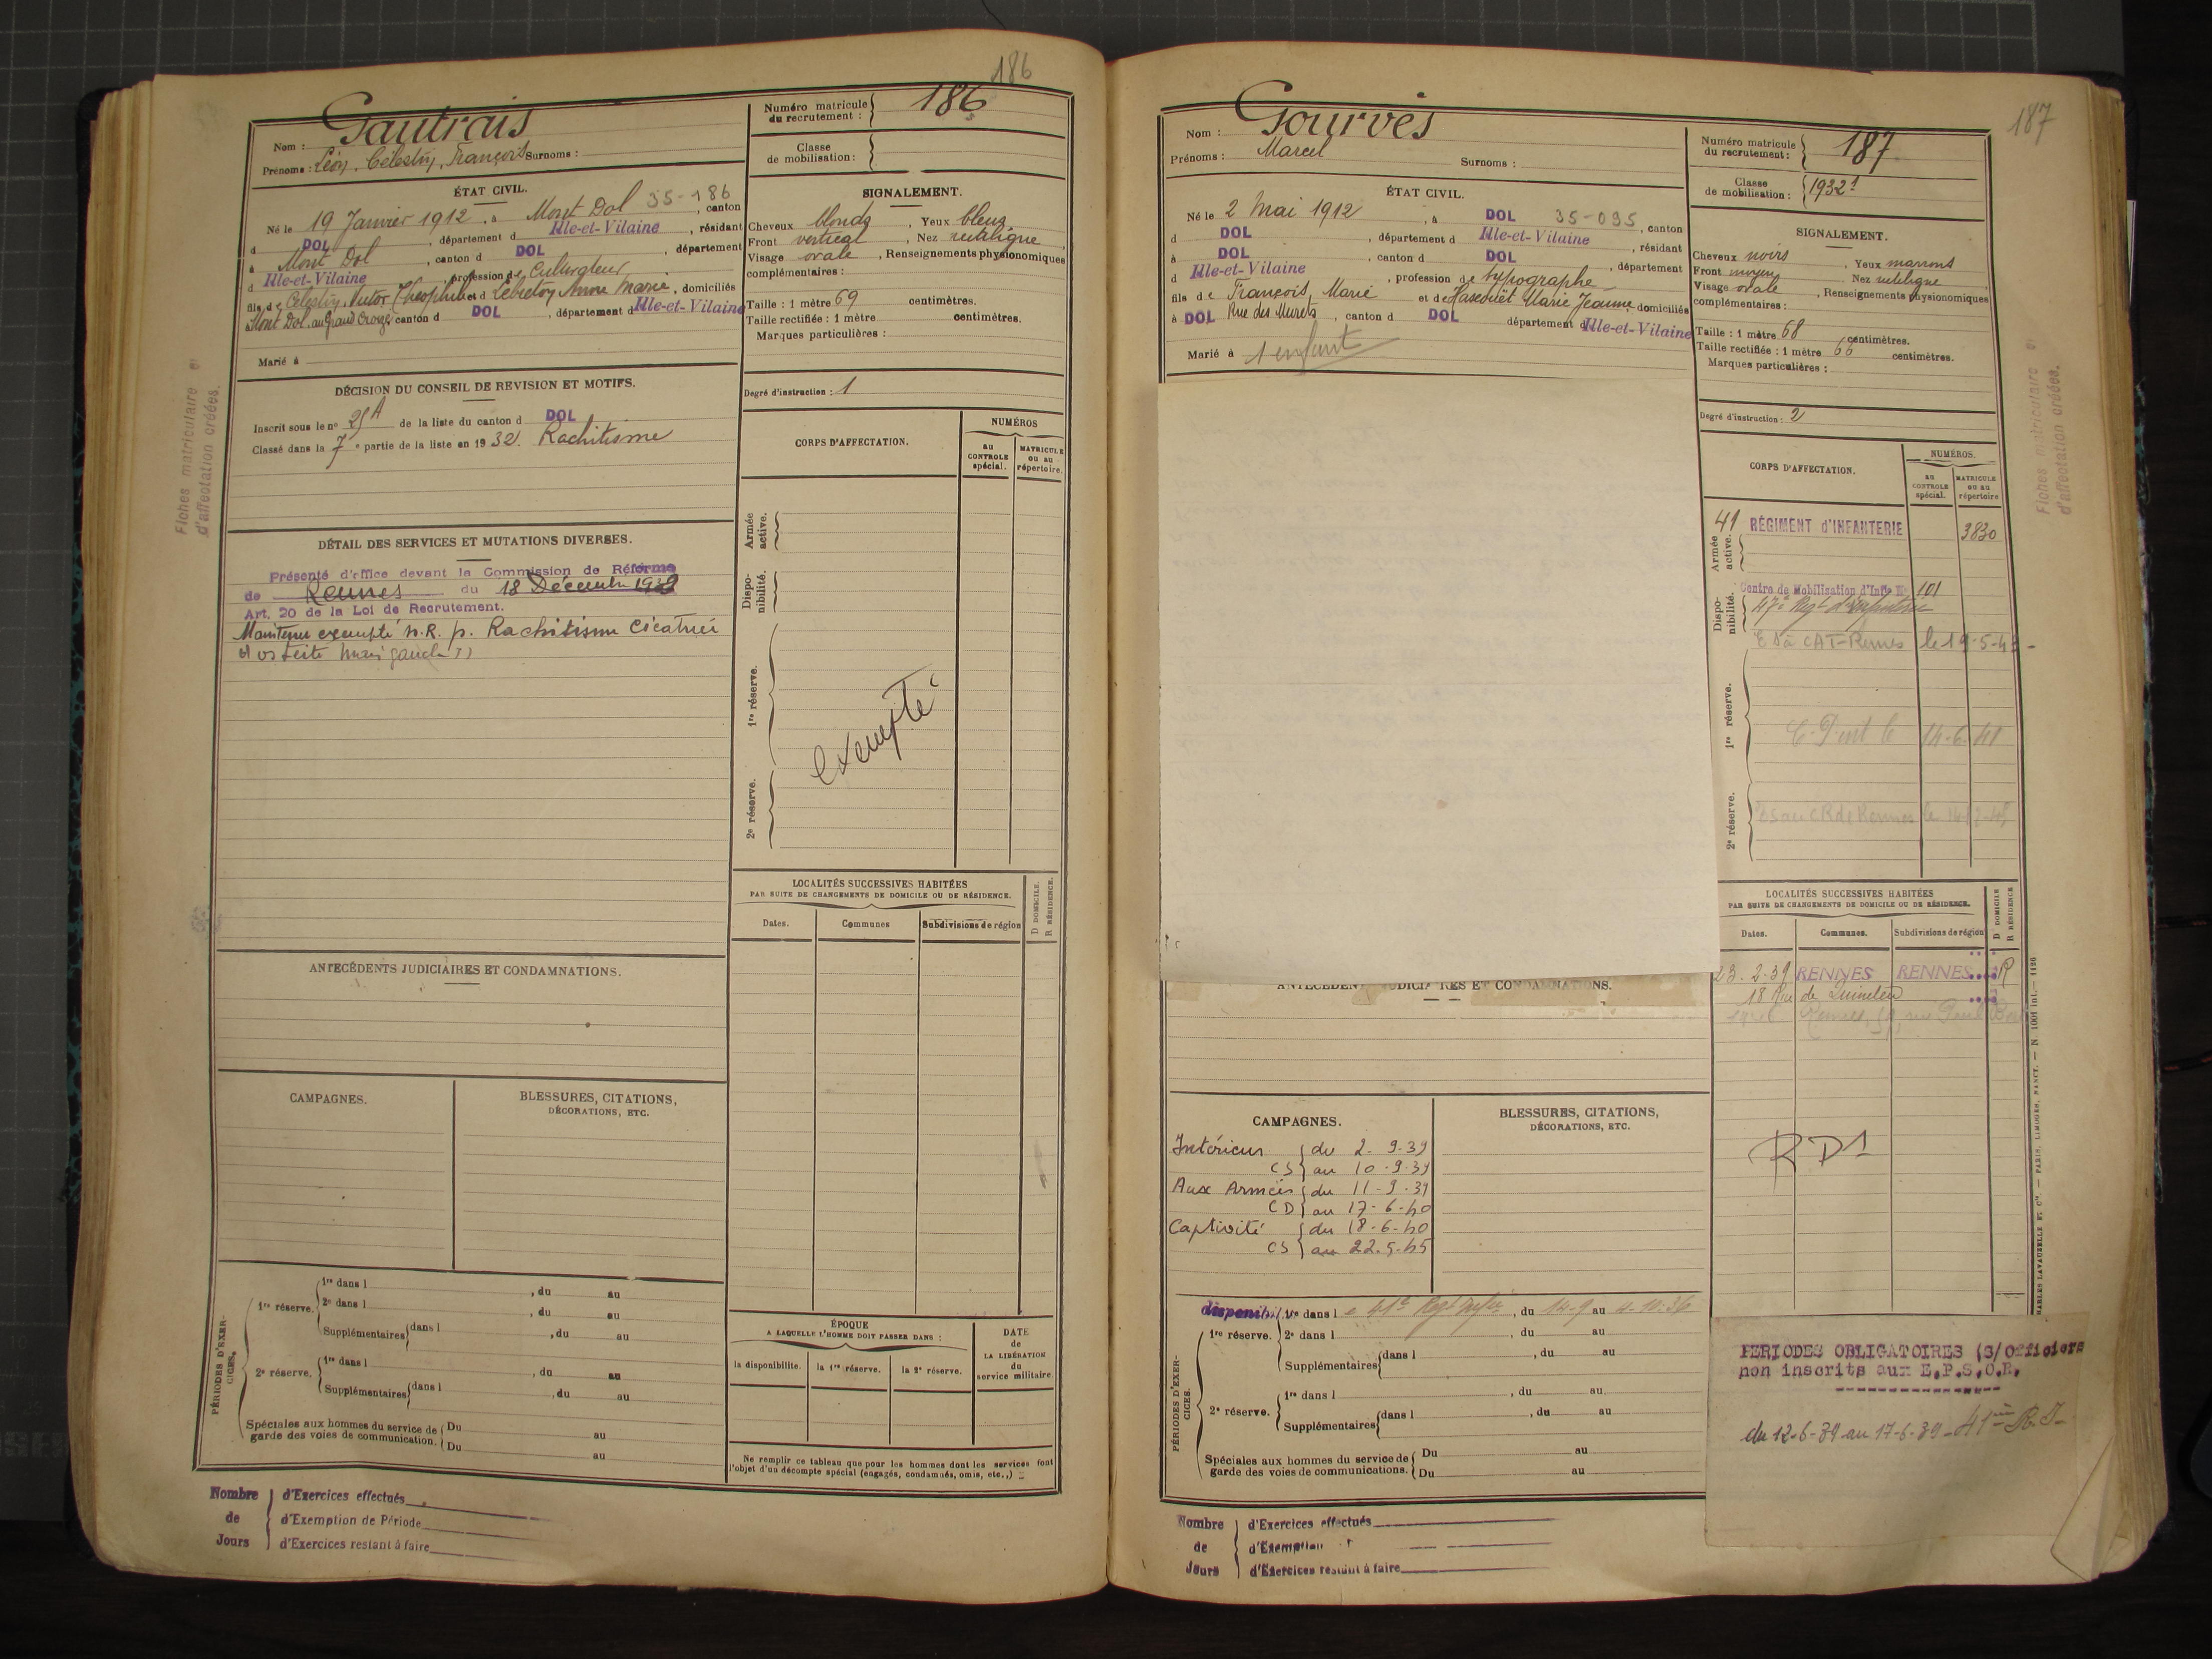 186
Gautrais
Nom :
Prénoms : Léon, Célestin, François Surnoms :
Numéro matricule du recrutement : 186
Classe de mobilisation :
ÉTAT CIVIL.
Né le 19 Janvier 1912, à Mont Dol 35-186, canton
d DOL, département d Ille-et-Vilaine, résidant
à Mont Dol, canton d DOL, département
d Ille-et-Vilaine, profession de Cultivateur
fils de Célestin, Victor, Théophile et d Lebreton Anne Marie, domiciliés
Mont Dol, au Grand canton d DOL, département d Ille-et-Vilaine
Marié à
SIGNALEMENT.
Cheveux blonds, Yeux bleus
Front vertical, Nez rectiligne,
Visage ovale, Renseignements physionomiques
complémentaires :
Taille : 1 mètre 69 centimètres.
Taille rectifiée : 1 mètre centimètres.
Marques particulières :
Degré d'instruction : 1
DÉCISION DU CONSEIL DE REVISION ET MOTIFS.
Inscrit sous le no 25A de la liste du canton d DOL
Classé dans la 7e partie de la liste en 1932. Rachitisme
DÉTAIL DES SERVICES ET MUTATIONS DIVERSES.
Présenté d'office devant la Commission de Réforme
de Rennes du 18 Décembre 1939
Art. 20 de la Loi de Recrutement.
Maintenu exempté n.R. p. Rachitisme
main gauche
CORPS D'AFFECTATION.
NUMÉROS
au CONTROLE spécial.
MATRICULE ou au répertoire.
Armée active.
Disponibilité.
1re réserve.
2e réserve.
exempté
LOCALITÉS SUCCESSIVES HABITÉES
PAR SUITE DE CHANGEMENTS DE DOMICILE OU DE RÉSIDENCE.
D DOMICILE.
R RÉSIDENCE.
Dates.
Communes
Subdivisions de région
ANTÉCÉDENTS JUDICIAIRES ET CONDAMNATIONS.
CAMPAGNES.
BLESSURES, CITATIONS,
DÉCORATIONS, ETC.
PÉRIODES D'EXERCICES.
1re réserve.
1re dans l , du au
2e dans l , du au
Supplémentaires dans l , du au
2e réserve.
1re dans l , du au
Supplémentaires dans l , du au
Spéciales aux hommes du service de
garde des voies de communication.
Du au
Du au
ÉPOQUE
A LAQUELLE L'HOMME DOIT PASSER DANS :
la disponibilité.
la 1re réserve.
la 2e réserve.
DATE
de
LA LIBÉRATION
du
service militaire.
Ne remplir ce tableau que pour les hommes dont les services font
l'objet d'un décompte spécial (engagés, condamnés, omis, etc.,)
Nombre de Jours
d'Exercices effectués
d'Exemption de Période
d'Exercices restant à faire
Fiches matriculaire e
d'affectation créées.
187
Gourvès
Nom :
Prénoms : Marcel Surnoms :
Numéro matricule du recrutement : 187
Classe de mobilisation : 1932
ÉTAT CIVIL.
Né le 2 Mai 1912, à DOL 35-095, canton
d DOL, département d Ille-et-Vilaine, résidant
à DOL, canton d DOL, département
d Ille-et-Vilaine, profession de typographe
fils de François, Marie et de Marie Jeanne, domiciliés
à DOL Rue des Murets, canton d DOL département d Ille-et-Vilaine
Marié à 1 enfant
SIGNALEMENT.
Cheveux noirs, Yeux marrons
Front moyen Nez rectiligne
Visage ovale, Renseignements physionomiques
complémentaires :
Taille : 1 mètre 68 centimètres.
Taille rectifiée : 1 mètre 66 centimètres.
Marques particulières :
Degré d'instruction : 2
CORPS D'AFFECTATION.
NUMÉROS.
au CONTROLE spécial.
MATRICULE ou au répertoire
Armée active.
41 RÉGIMENT d'INFANTERIE 3830
Disponibilité.
Centre de Mobilisation d'Infie No 101
47e Regt d'infanterie
CAT-Rennes le 19-5-4
1re réserve.
le 14-6-41
2e réserve.
CR de Rennes le
LOCALITÉS SUCCESSIVES HABITÉES
PAR SUITE DE CHANGEMENTS DE DOMICILE OU DE RÉSIDENCE.
D DOMICILE
R RÉSIDENCE.
Dates.
Communes.
Subdivisions de région
23.2.39 RENNES RENNES R
18 Rue de Quineleu
Rennes, rue Paul
RD1
ANTÉCÉDEN JUDICIAIRES ET CONDAMNATIONS.
CAMPAGNES.
Intérieur du 2-9-39
CS au 10-9-39
Aux Armées du 11-9-39
CD au 17-6-40
Captivité du 18-6-40
CS au 22.5.45
BLESSURES, CITATIONS,
DÉCORATIONS, ETC.
PÉRIODES D'EXERCICES.
disponibi 1re dans l e 41e Regt Infie, du 14-9 au 4-10-36
1re réserve.
2e dans l , du au
Supplémentaires dans l , du au
2e réserve.
1re dans l , du au
Supplémentaires dans l , du au
Spéciales aux hommes du service de
garde des voies de communications.
Du au
Du au
PERIODES OBLIGATOIRES (S/Officiers
non inscrits aux E.P.S.O.R.
du 12-6-39 au 17-6-39 - 41ème R.I-
Nombre de Jours
d'Exercices effectués
d'Exemption
d'Exercices restant à faire
Fiches matriculaire e
d'affectation créées.
CHARLES LAVAUZELLE ET Cie. — PARIS, LIMOGES, NANCY. — N. 1001 int. — 1126